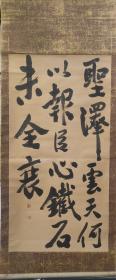 聖澤雲天何
以報臣心鐵石
未全衰